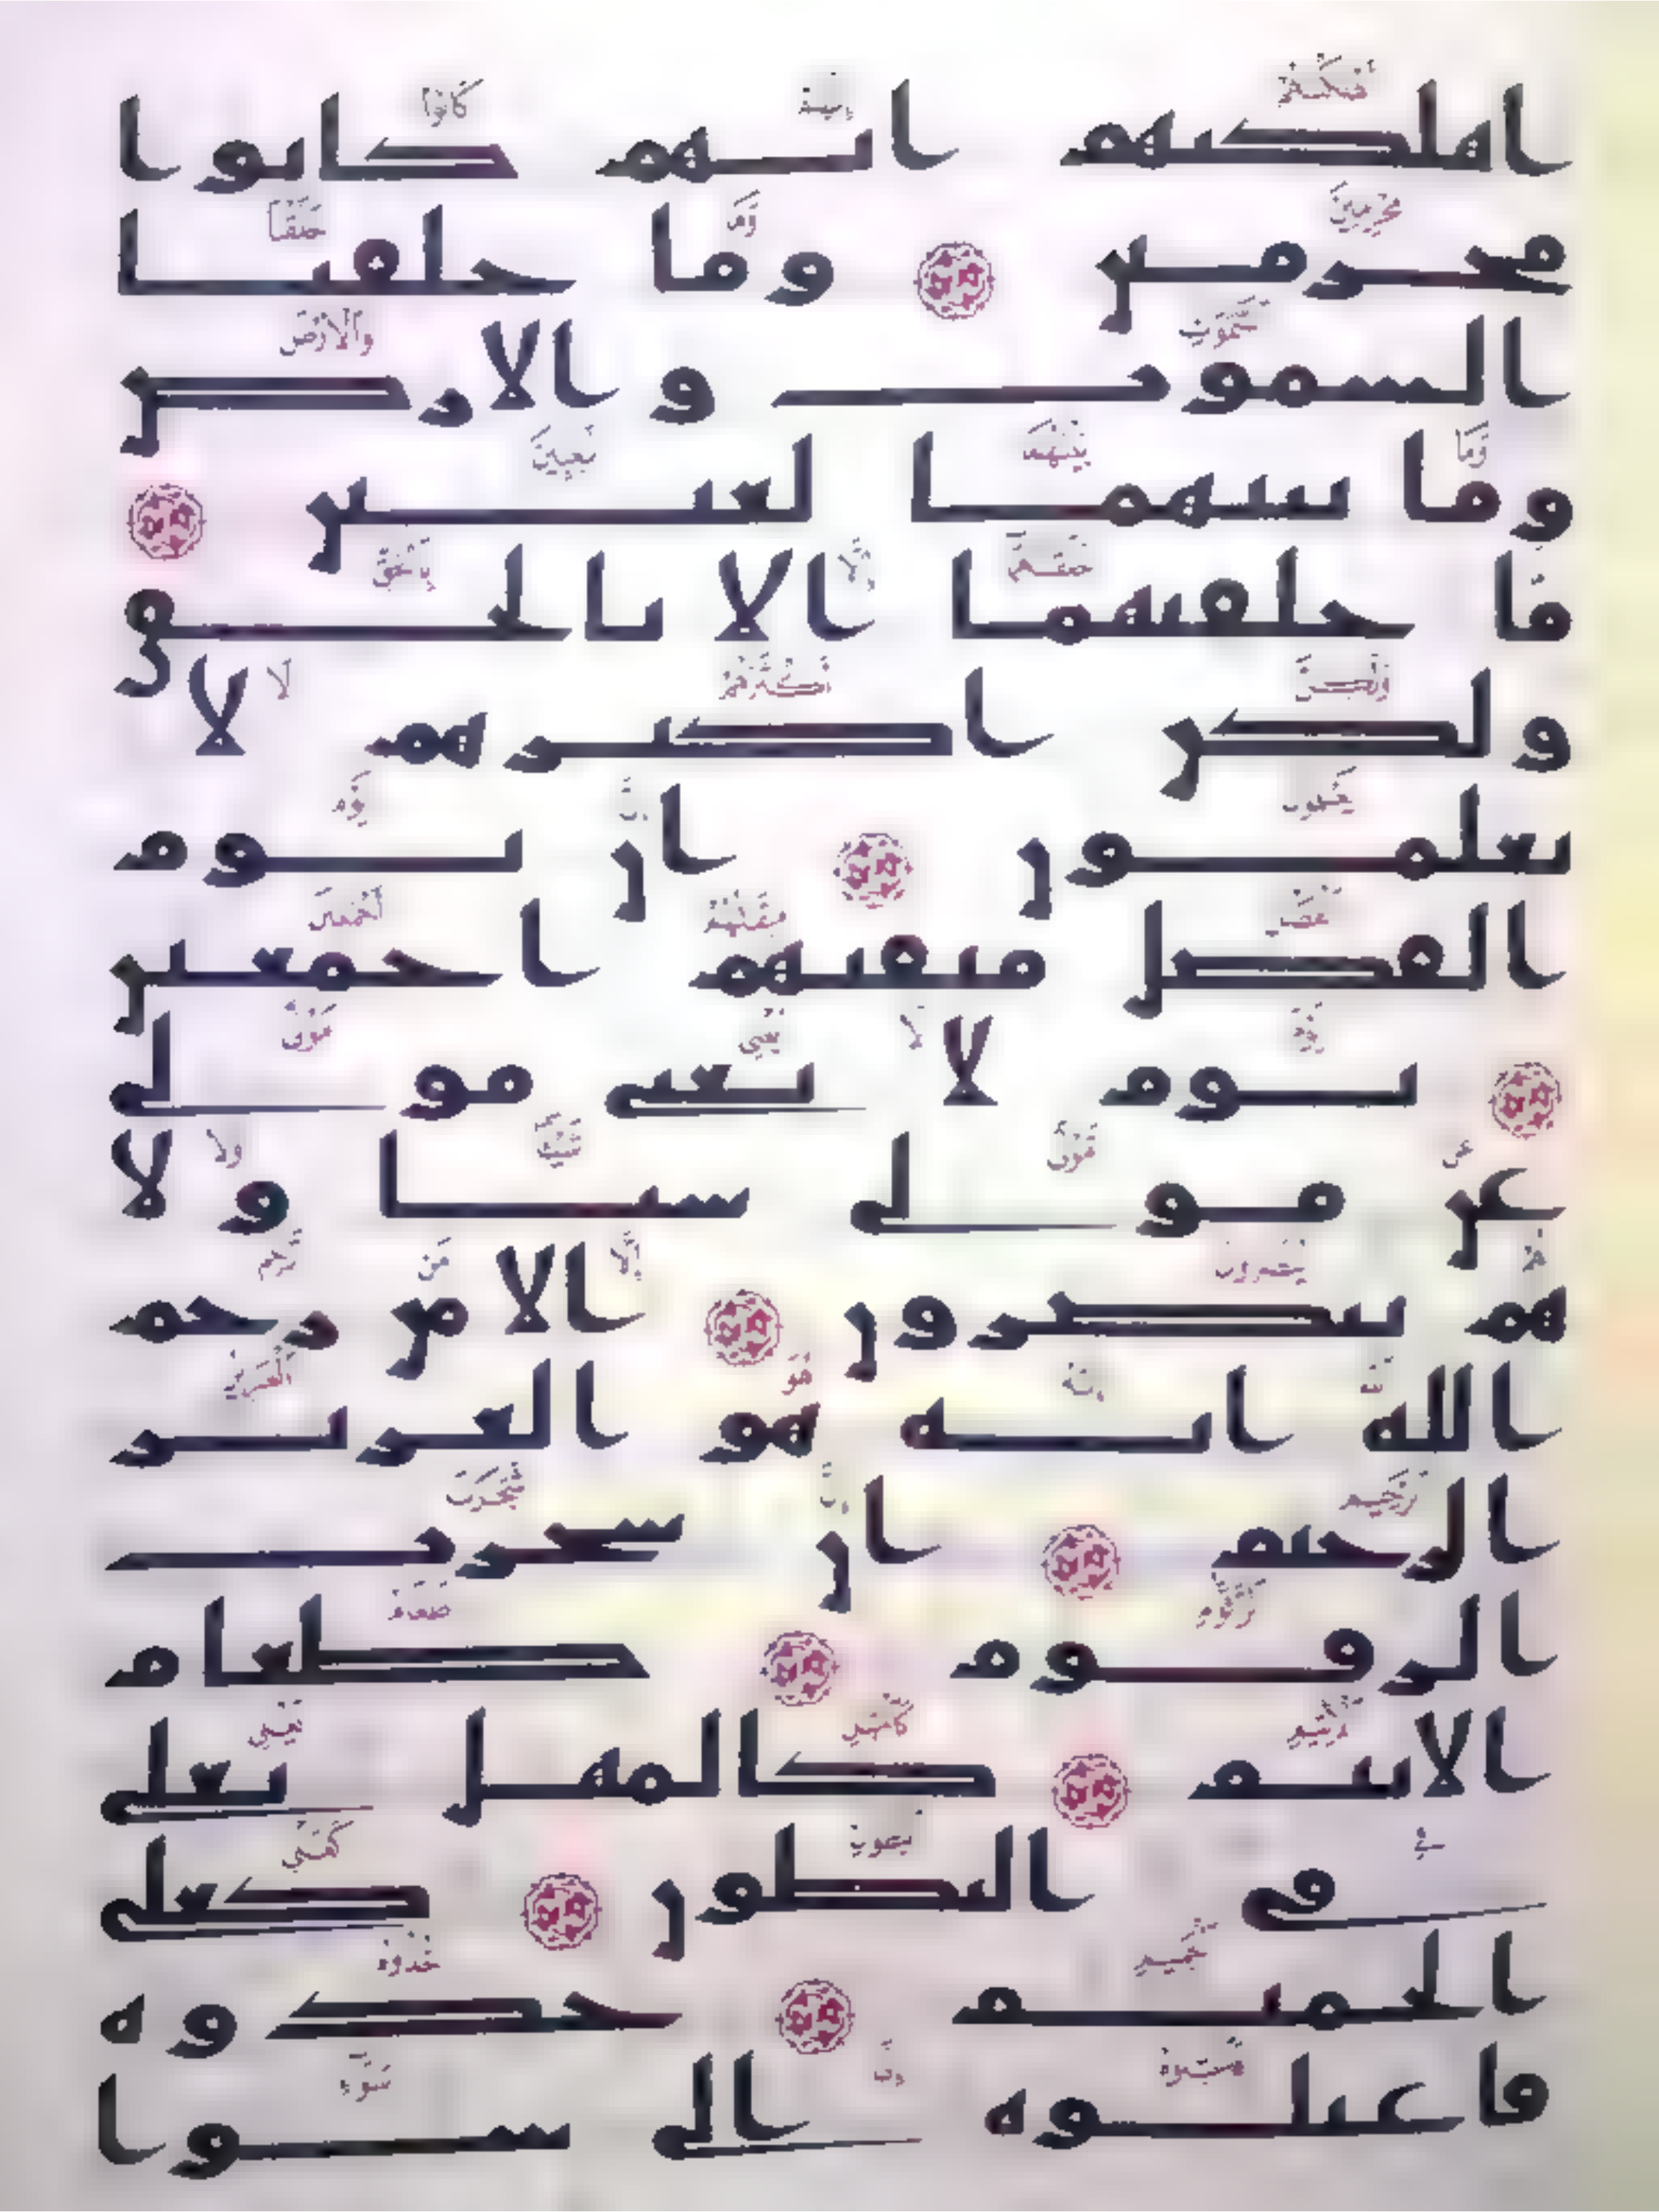 اهلكنهم انهم كانوا
مجرمين وما خلقنا
السموت والارض
وما بينهما لعبين
ما خلقنهما الا بالحق
ولكن اكثرهم لا
يعلمون ان يوم
الفصل ميقتهم اجمعين
يوم لا يغنى مولى
عن مولى شيا ولا
هم ينصرون الا من رحم
الله انه هو العزيز
الرحيم ان شجرت
الزقوم طعام
الاثيم كالمهل يغلى
فى البطون كغلى
الحميم خذوه
فاعتلوه الى سوا